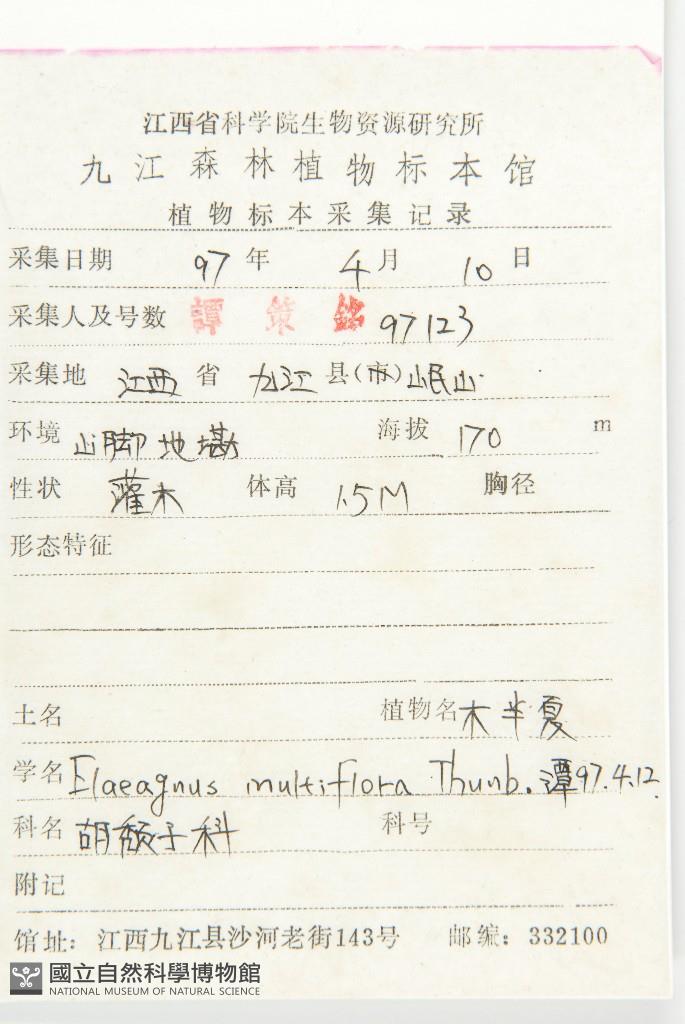 江西省科学院生物资源研究所
九江森林植物标本馆
植物标本采集记录
采集日期 97 年 4 月 10 日
采集人及号数 譚策銘 97123
采集地 江西 省 九江 县(市) 岷山
环境 山脚地墈 海拔 170 m
性状 灌木 体高 1.5M 胸径
形态特征
土名 植物名 木半夏
学名 Elaeagnus multiflora Thunb. 潭97.4.12.
科名 胡颓子科 科号
附记
馆址：江西九江县沙河老街143号 邮编：332100
國立自然科學博物館
NATIONAL MUSEUM OF NATURAL SCIENCE